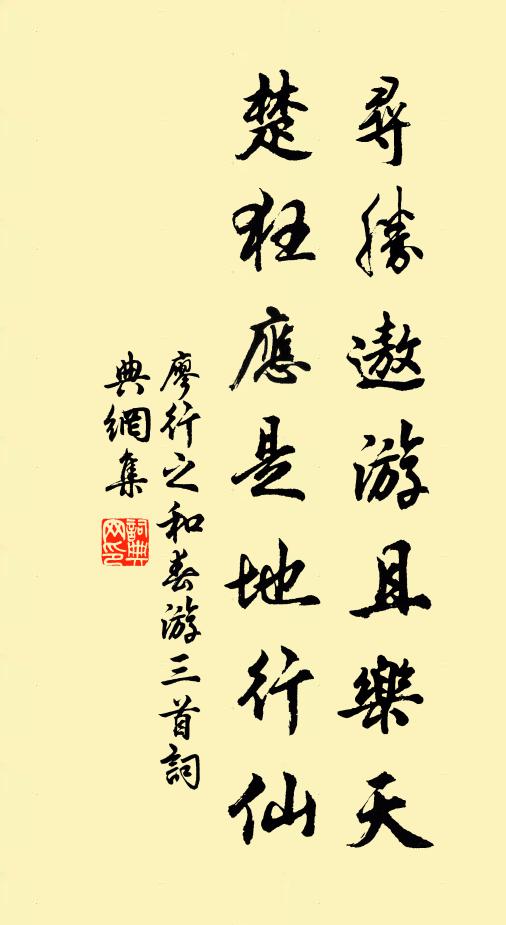 尋勝遨游且樂天
楚狂應是地行仙
廖行之和春游三首詞
典網集
詞典網印